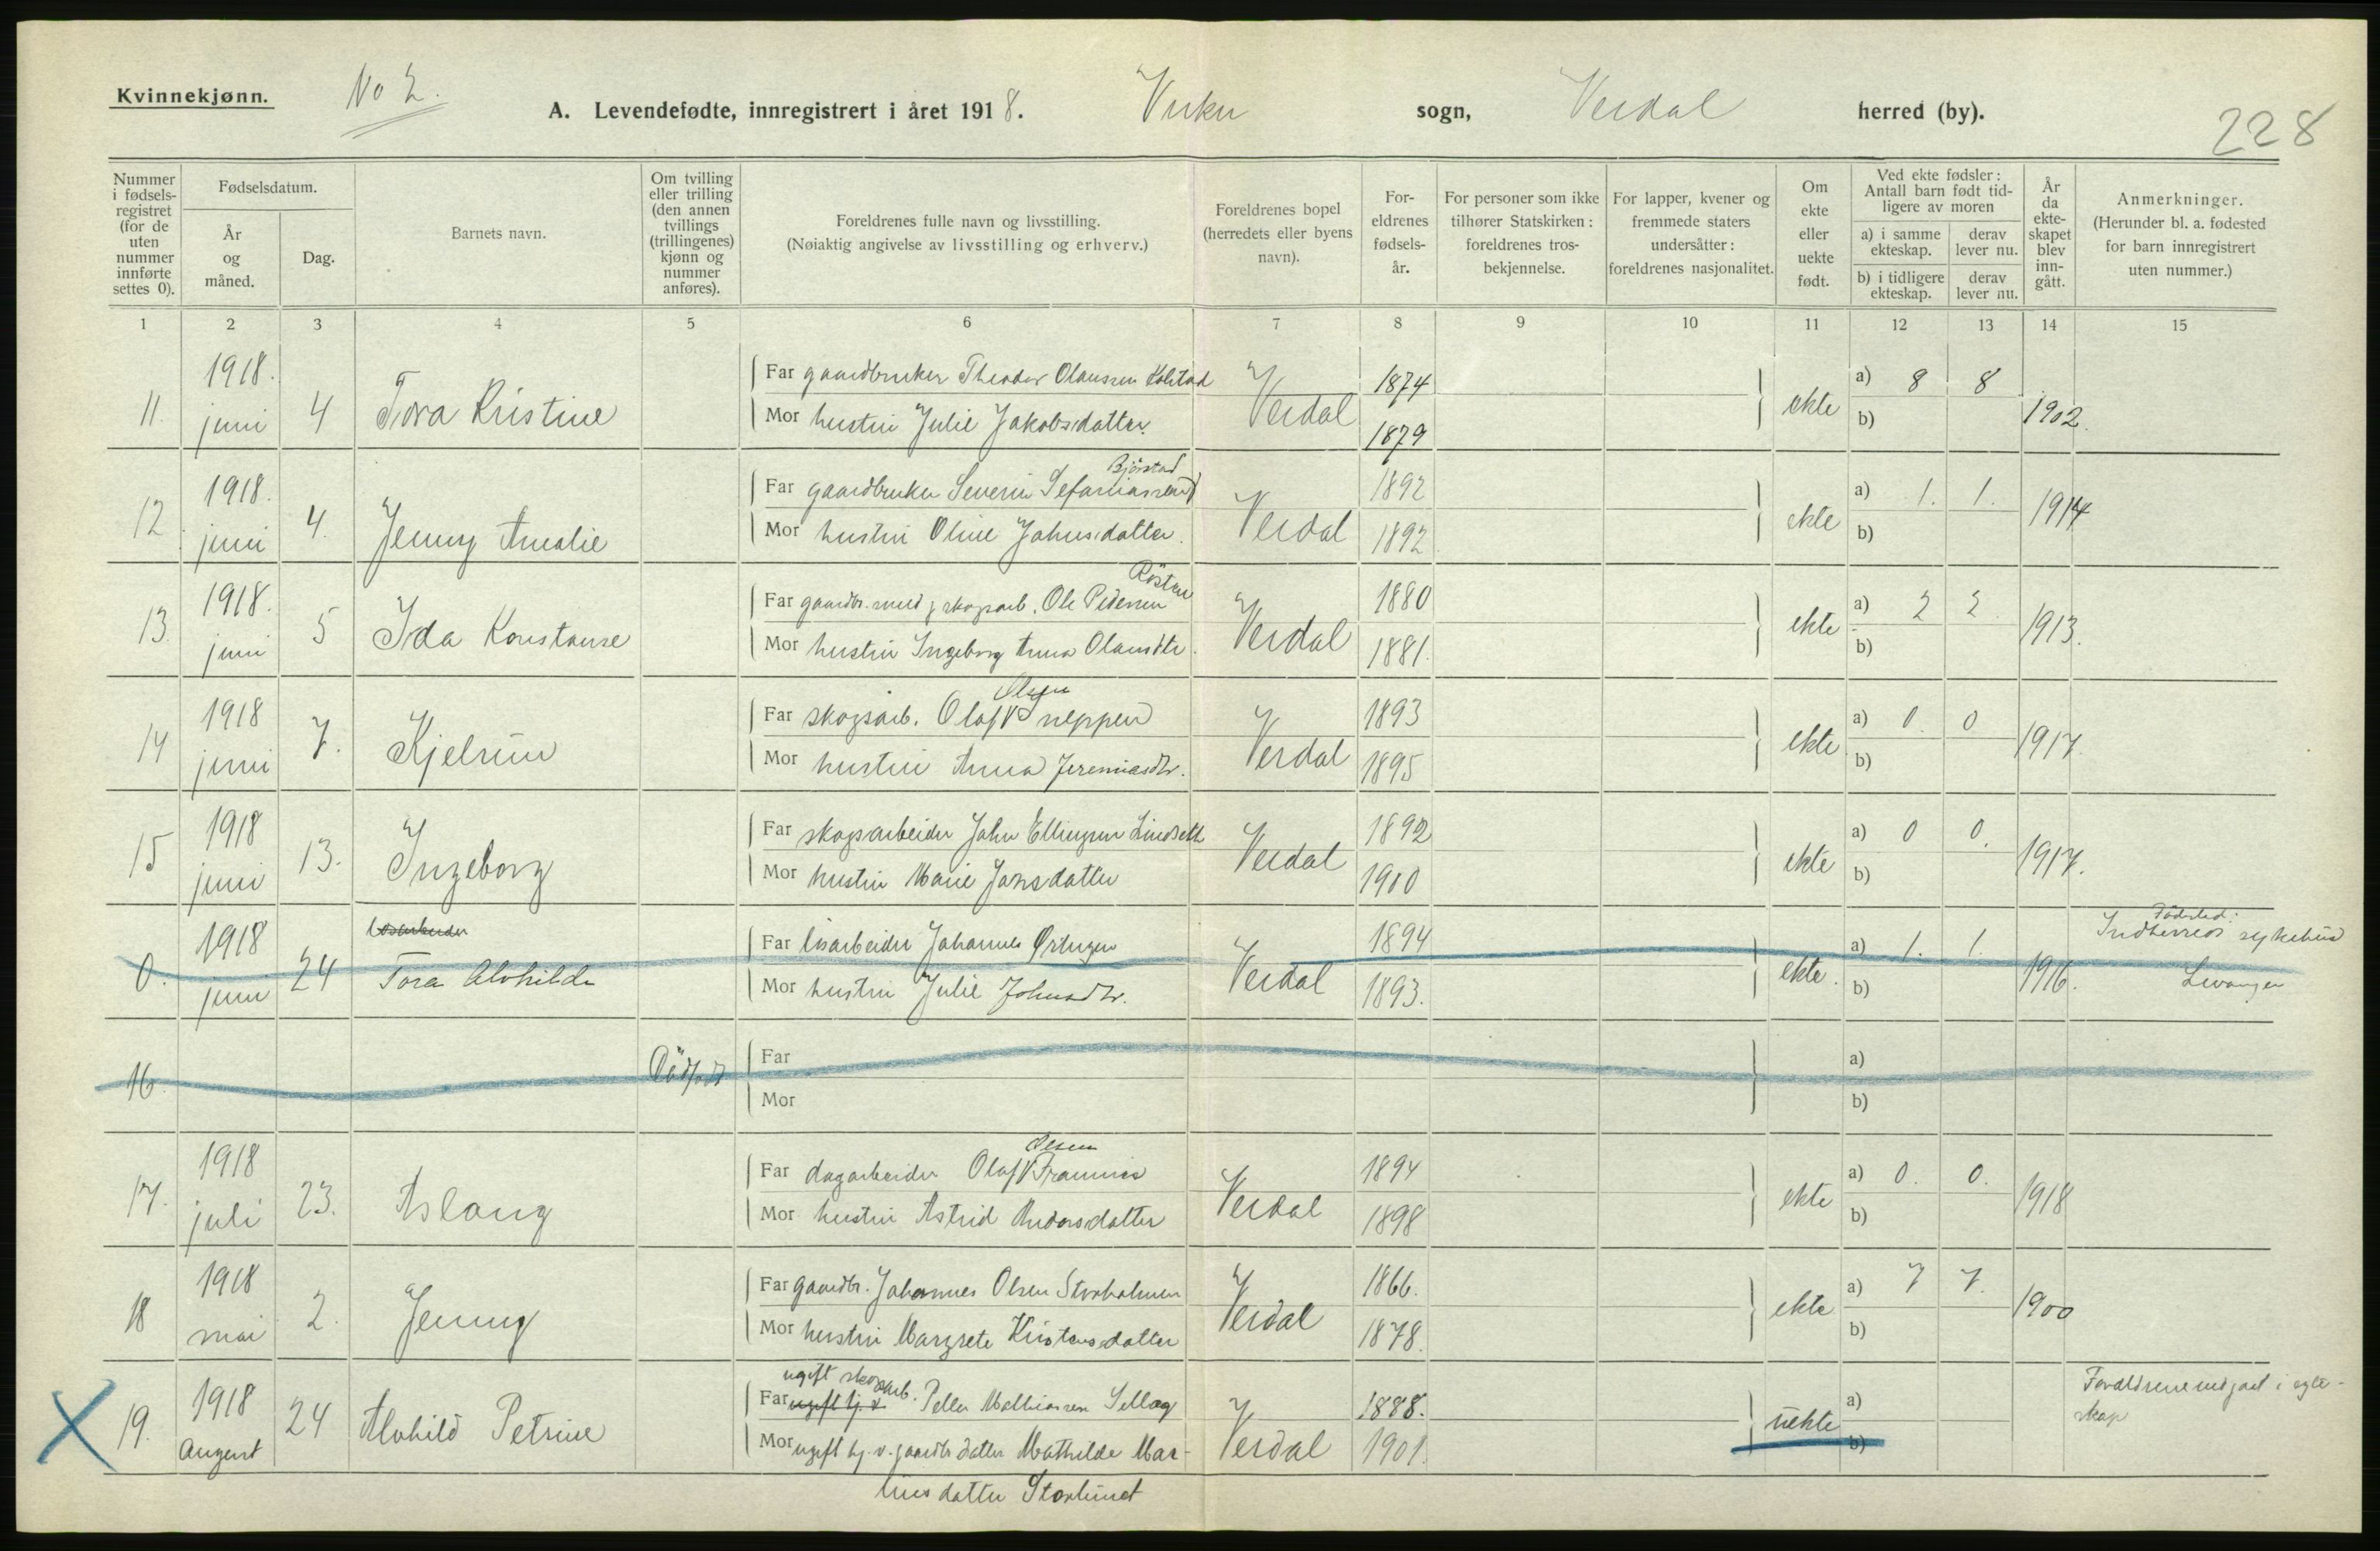 Kvinnekjønn.
No 2.
A. Levendefødte, innregistrert i året 1918. Vuku sogn, Verdal herred (by).
228
Nummer i fødsels-registret (for de uten nummer innførte settes 0).
Fødselsdatum.
År og måned.
Dag.
Barnets navn.
Om tvilling eller trilling (den annen tvillings (trillingenes) kjønn og nummer anføres).
Foreldrenes fulle navn og livsstilling.
(Nøiaktig angivelse av livsstilling og erhverv.)
Foreldrenes bopel (herredets eller byens navn).
For-eldrenes fødsels-år.
For personer som ikke tilhører Statskirken: foreldrenes tros-bekjennelse.
For lapper, kvener og fremmede staters undersåtter: foreldrenes nasjonalitet.
Om ekte eller uekte født.
Ved ekte fødsler: Antall barn født tid-ligere av moren
a) i samme ekteskap.
derav lever nu.
b) i tidligere ekteskap.
derav lever nu.
År da ekte-skapet blev inn-gått.
Anmerkninger.
(Herunder bl. a. fødested for barn innregistrert uten nummer.)
1 2 3 4 5 6 7 8 9 10 11 12 13 14 15
11. 1918. juni 4 Tora Kristine
Far gaardbruker Theodor Olaussen Kolstad
Mor hustru Julie Jakobsdatter.
Verdal 1874 1879 ekte a) 8 8 b) 1902.
12. 1918. juni 4. Jenny Amalie
Bjørstad
Far gaardbruker Severin Sefaniassen
Mor hustru Oline Johnsdatter.
Verdal 1892 1892 ekte a) 1. 1. b) 1914
13. 1918. juni 5 Ida Konstanse
Far gaardbr. med skogsarb. Ole Pedersen
Mor hustru Ingeborg Anna Olausdtr.
Verdal 1880 1881. ekte a) 2 2 b) 1913.
14 1918 juni 7. Kjelrun
Olsen
Far skogsarb. Olaf Sneppen
Mor hustru Anna Jeremiasdtr.
Verdal 1893 1895 ekte a) 0. 0 b) 1917.
15 1918 juni 13. Ingeborg
Far skogsarbeider John Ellingsen Lindseth
Mor hustru Marie Jonsdatter
Verdal 1892 1900 ekte a) 0 0. b) 1917.
0. 1918 juni 24 Tora Alvhilde
Far løsarbeider Johannes
Mor hustru Julie Johnsdtr.
Verdal 1894 1893. ekte. a) 1. 1. b) 1916.
Födested: Indherred sykehus
Levanger
16. Dödfødt
Far
Mor
a)
b)
17. 1918 juli 23. Aslaug
Olsen
Far dagarbeider Olaf
Mor hustru Astrid Andersdatter
Verdal 1894 1898 ekte a) 0. 0. b) 1918
18 1918 mai 2. Jenny
Far gaardbr. Johannes Olsen Storholmen
Mor hustru Margrete Kristensdatter
Verdal 1866. 1878. ekte a) 7 7. b) 1900
19. 1918 August 24 Alvhild Petrine
ugift skogsarb.
Far Petter Mathiassen
Mor ugift hj. v. gaardbr datter Mathilde Mar-
tinsdatter Storlunet
Verdal 1888. 1901. uekte a) b)
Foreldrene indgaat i egte-
skap